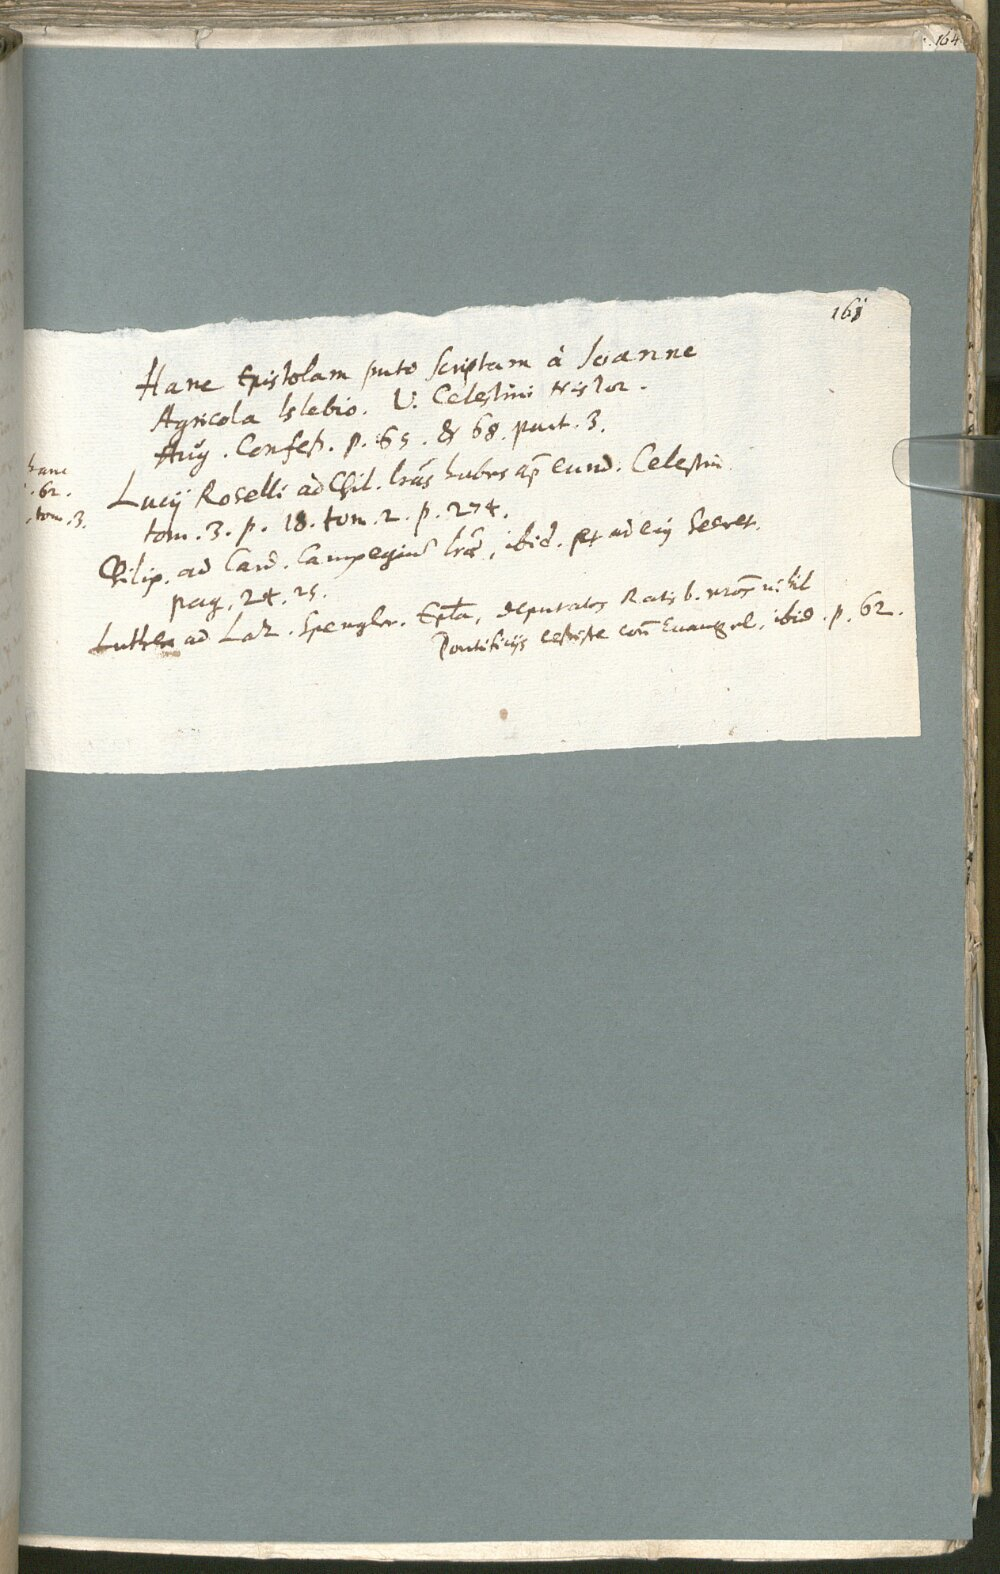 164
161
Hanc Epistolam puto Scriptam à Joanne
Agricola Islebio. V. Celestini Histor.
Aug. Confeß. p. 65. & 68. part. 3.
Lucij Roselli ad Phil. lrãs habes ap̃ eund. Celestin
tom. 3. p. 18. tom. 2. p. 274.
Philip. ad Card. Campegiũ lrã, ibid. et ad eiꝰ Secret.
pag. 24. 25.
Luther ad Laz. Spengler. Ep̃la, deputatos Ratisb. nros̃ nihil
Pontificijs coñ Euangel. ibid. p. 62.
hanc
. 62.
. tom. 3.